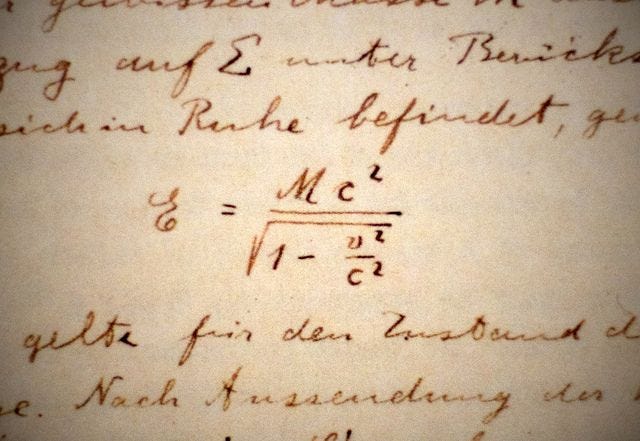 gewissen Masse M
auf Σ unter
sich in Ruhe befindet,
E = Mc² / √(1 - v²/c²)
gelte für den Zustand d
Nach Aussendung der